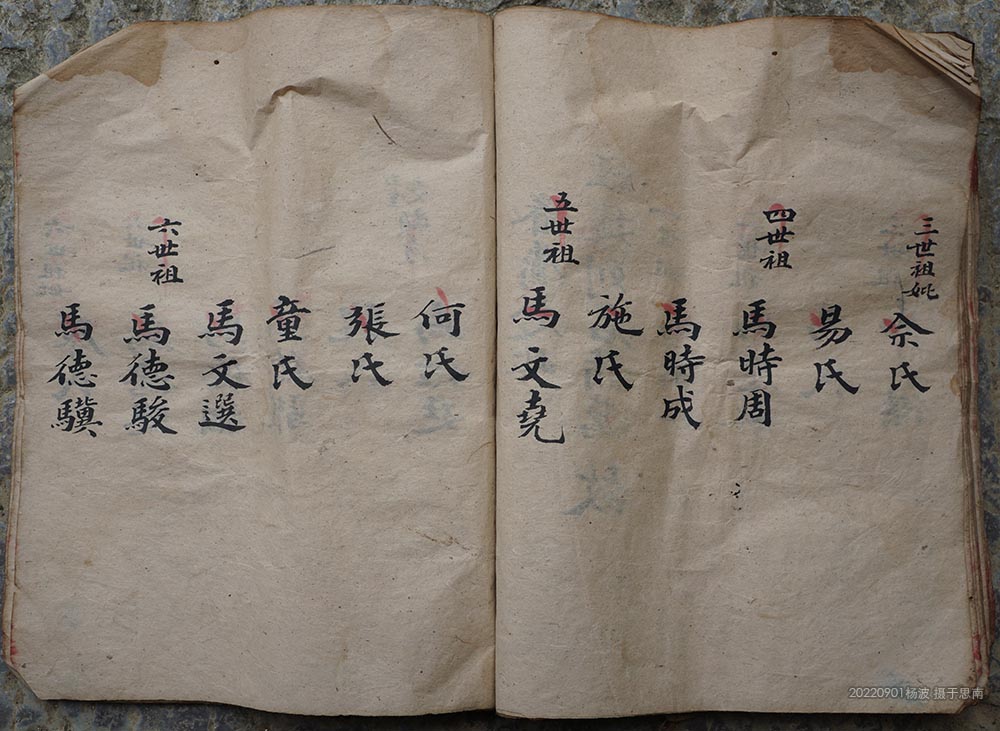 三世祖妣
佘氏
易氏
四世祖
馬時周
馬時成
施氏
五世祖
馬文堯
何氏
張氏
童氏
馬文選
六世祖
馬德駿
馬德驥
20220901杨波 摄于思南